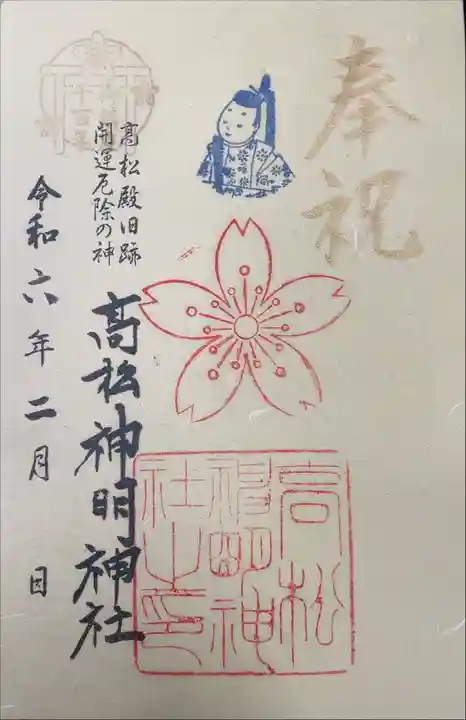 奉祝
高松神明神社之印
高松殿旧跡
開運厄除の神
髙松神明神社
令和六年二月 日